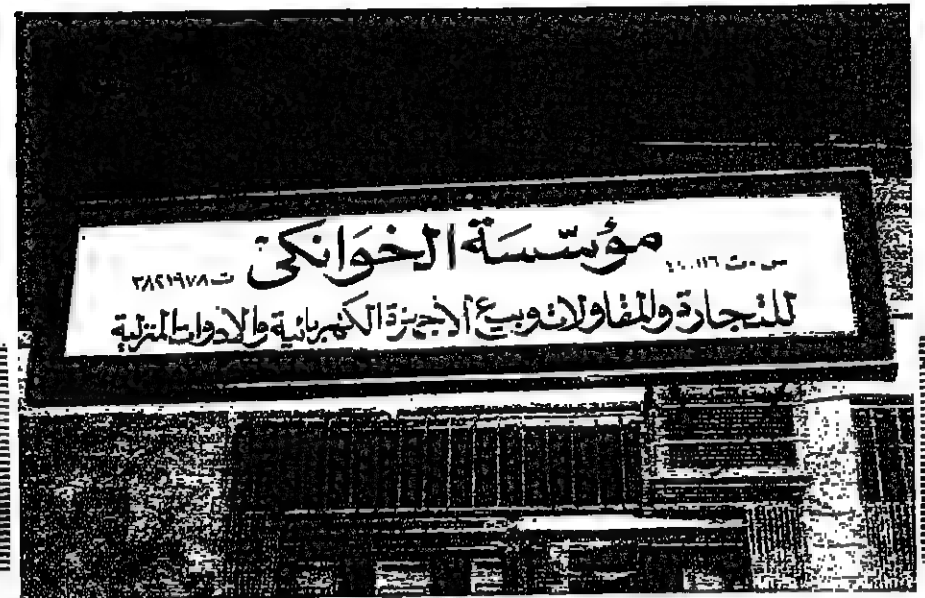 س.ت ٤٠٠١١٦ مؤسسة الخوانكى ت ٣٨٢١٩٧٨
للتجارة والمقاولات وبيع الأجهزة الكهربائية والادوات المنزلية